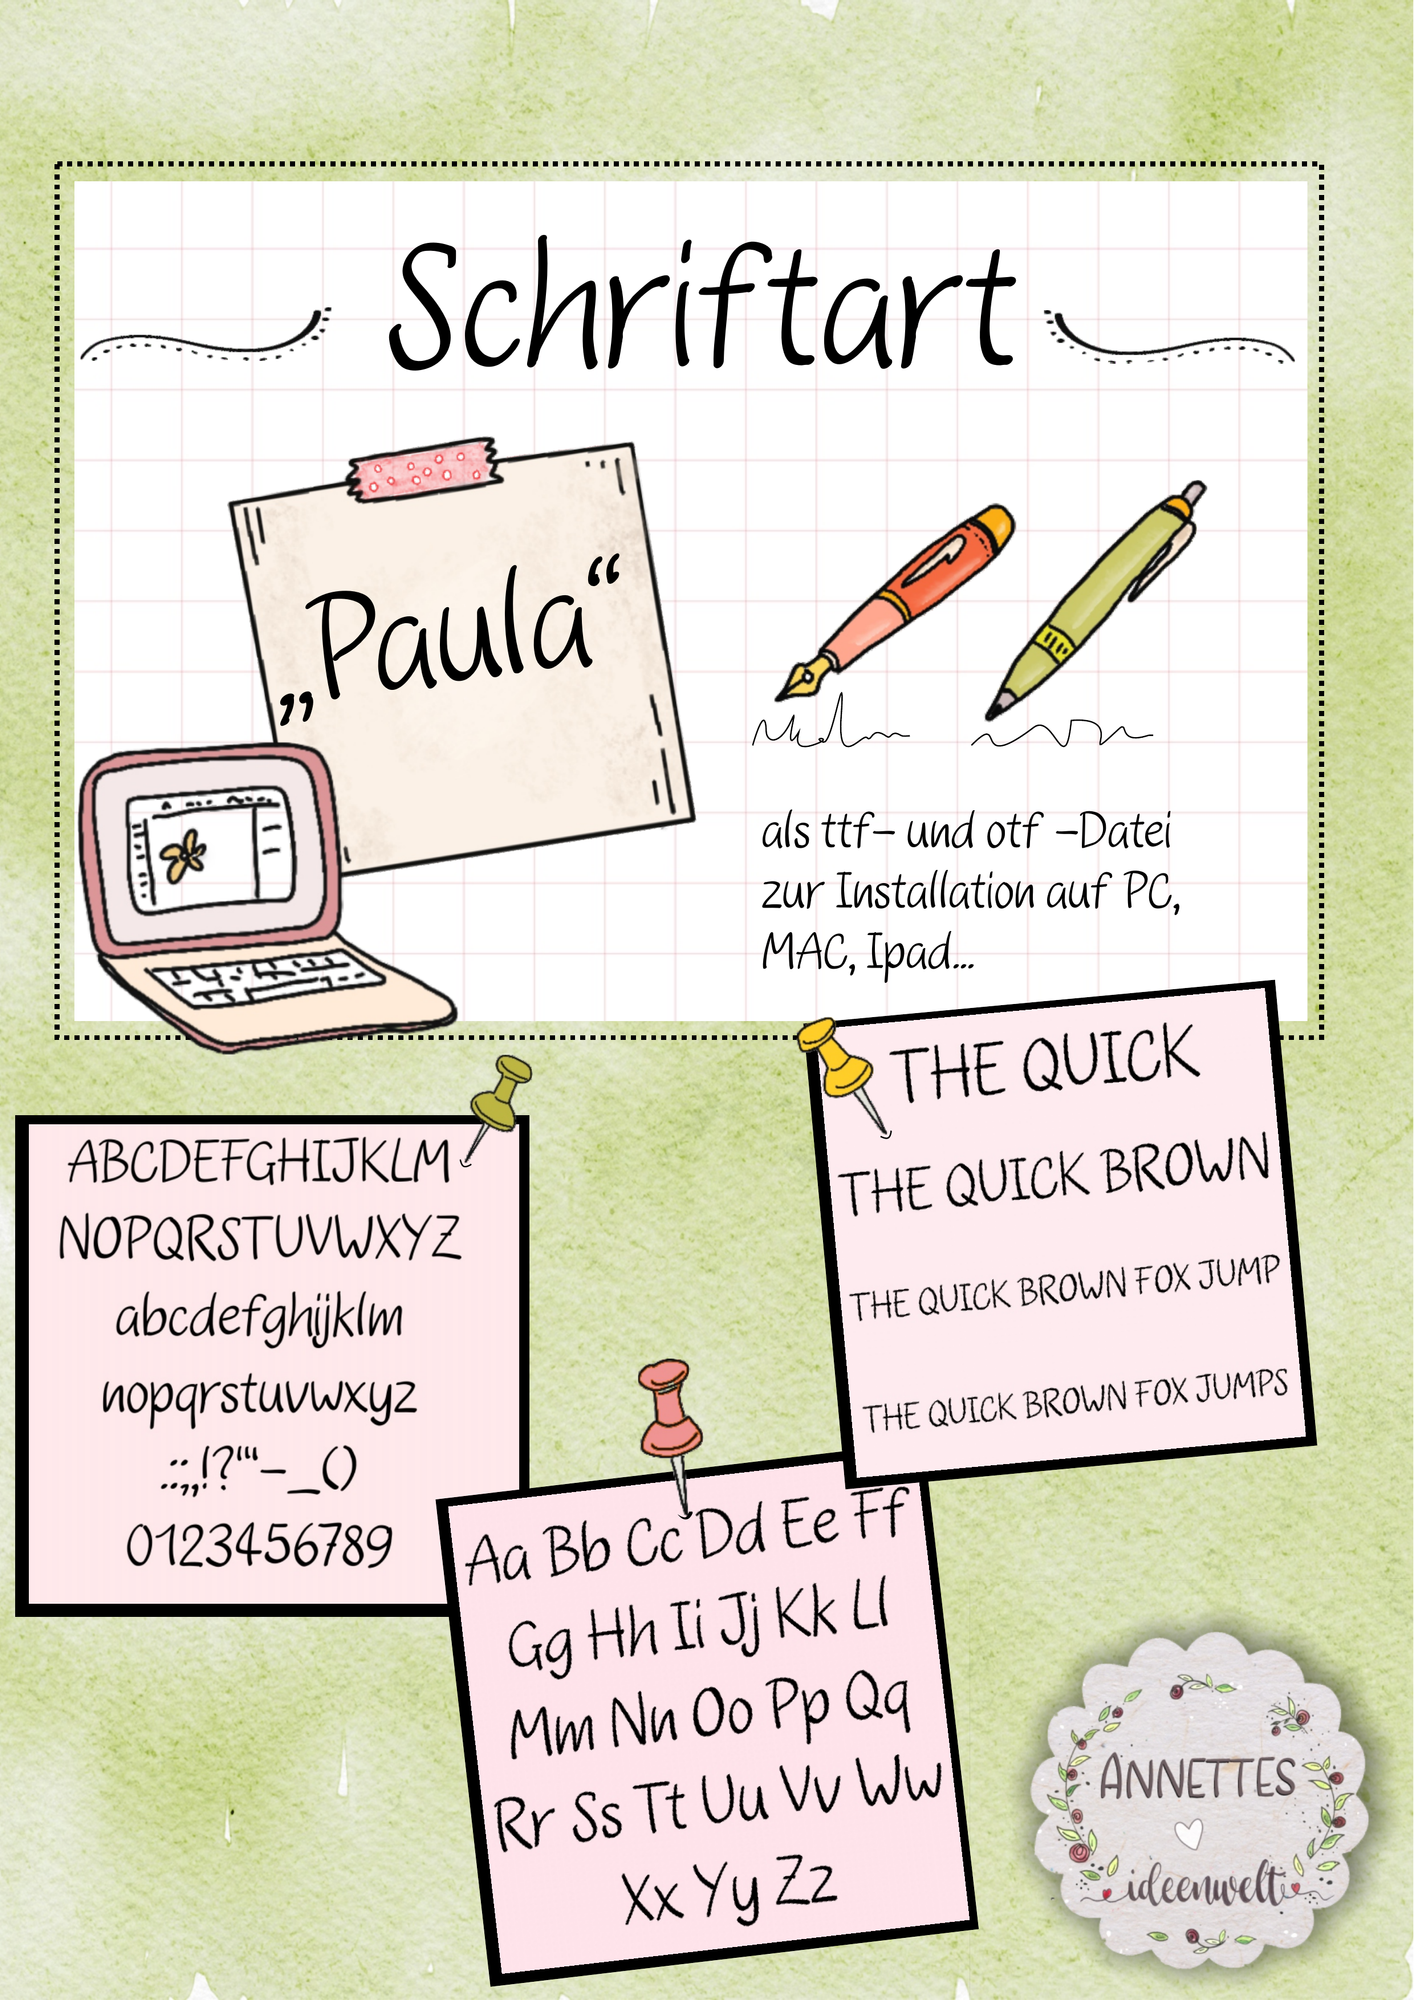 Schriftart
„Paula“
als ttf- und otf -Datei
zur Installation auf PC,
MAC, Ipad...
THE QUICK
THE QUICK BROWN
THE QUICK BROWN FOX JUMP
THE QUICK BROWN FOX JUMPS
ABCDEFGHIJKLM
NOPQRSTUVWXYZ
abcdefghijklm
nopqrstuvwxyz
.:;,!?"'-_()
0123456789
Aa Bb Cc Dd Ee Ff
Gg Hh Ii Jj Kk Ll
Mm Nn Oo Pp Qq
Rr Ss Tt Uu Vv Ww
Xx Yy Zz
ANNETTES
ideenwelt